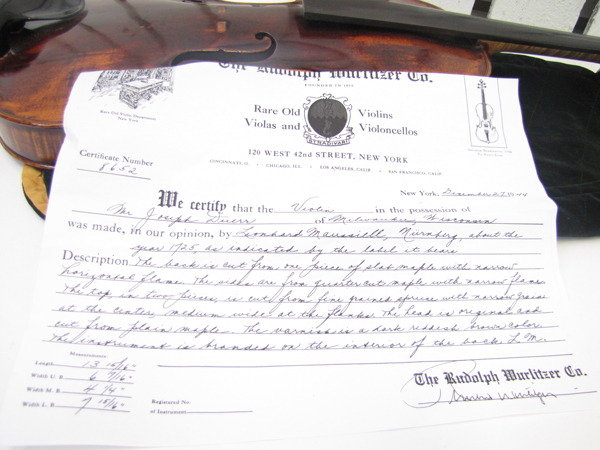 The Rudolph Wurlitzer Co.
FOUNDED IN 1856
Rare Old Violins
Violas and Violoncellos
STRADIVARI
Rare Old Violin Department
New York
120 WEST 42nd STREET, NEW YORK
CINCINNATI, O. • CHICAGO, ILL. • LOS ANGELES, CALIF. • SAN FRANCISCO, CALIF.
Certificate Number
8652
New York, December 27, 1944
We certify that the Violin in the possession of
Mr. Joseph Duerr of Milwaukee, Wisconsin
was made, in our opinion, by Leonhard Maussiell, Nürnberg, about the
year 1725, as indicated by the label it bears
Description The back is cut from one piece of slab maple with narrow
horizontal flame. The sides are from quarter cut maple with narrow flame
The top in two pieces, is cut from fine grained spruce with narrow grain
at the center, medium wide at the flanks. The head is original and
cut from plain maple. The varnish is a dark reddish brown color
The instrument is branded on the interior of the back L. M.
Measurements
Length 13 15/16"
Width U. B. 6 7/16"
Width M. B. 4 1/4"
Width L. B. 7 15/16"
Registered No.
of Instrument
The Rudolph Wurlitzer Co.